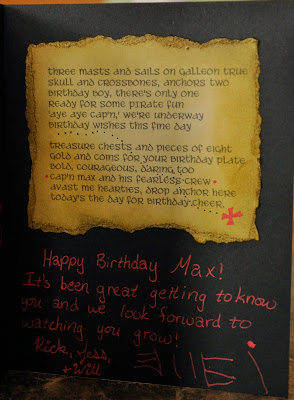 three masts and sails on galleon true
skull and crossbones, anchors two
birthday boy, there's only one
ready for some pirate fun
'aye aye cap'n,' we're underway
birthday wishes this fine day
treasure chests and pieces of eight
gold and coins for your birthday plate
bold, courageous, daring too
cap'n max and his fearless crew
avast me hearties, drop anchor here
today's the day for birthday cheer.
Happy Birthday Max!
It's been great getting to know
you and we look forward to
watching you grow!
Rick, Jess,
+ Will